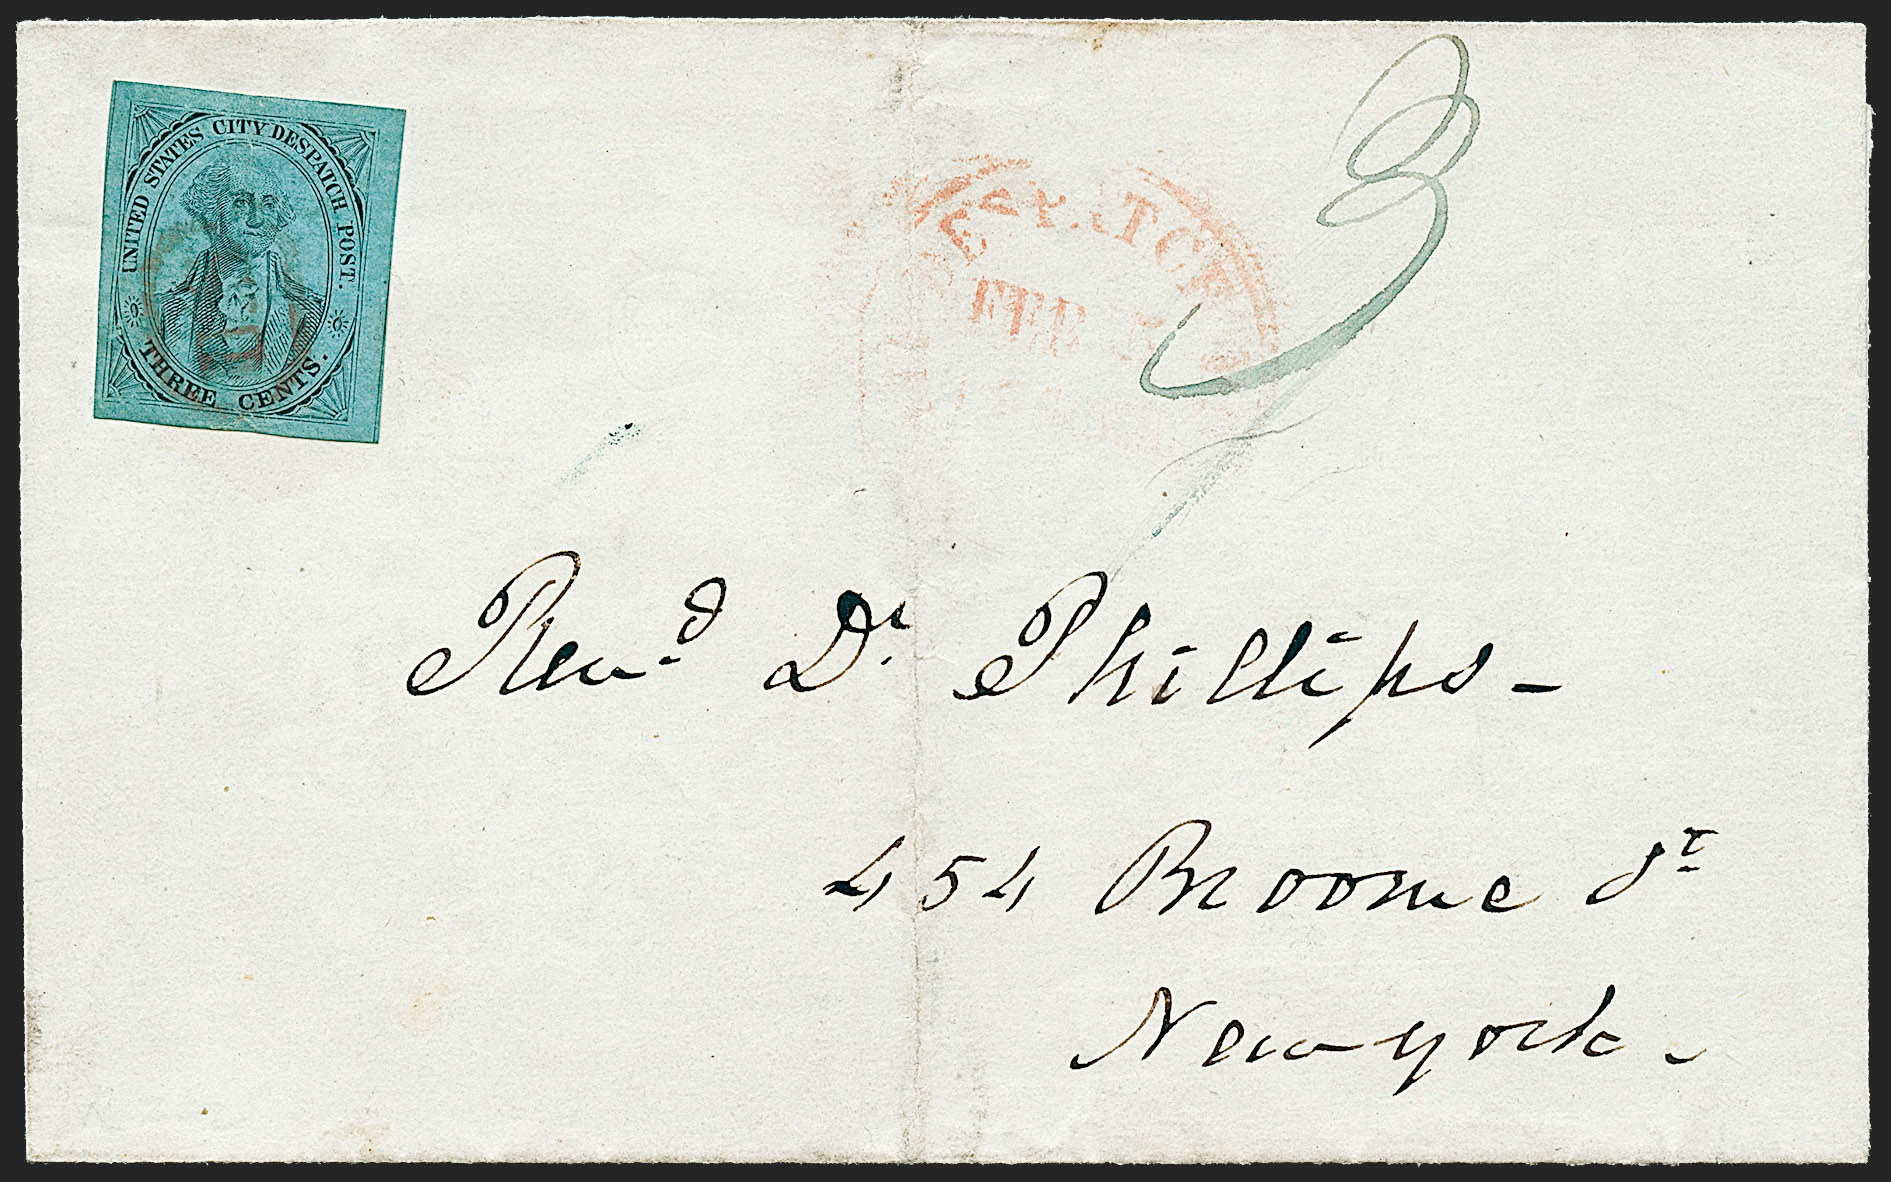 UNITED STATES CITY DESPATCH POST.
THREE CENTS.
DESPATCH
FEB 5
3
Revd. Dr. Phillips -
454 Broome St
New york.